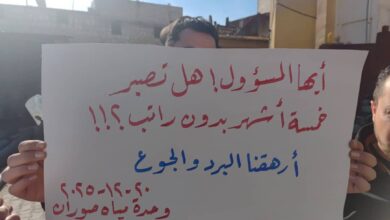 أيها المسؤول! هل تصبر
خمسة أشهر بدون راتب؟!!
أرهقنا البرد والجوع
٢٠-١٢-٢٠٢٥
وحدة مياه صوران